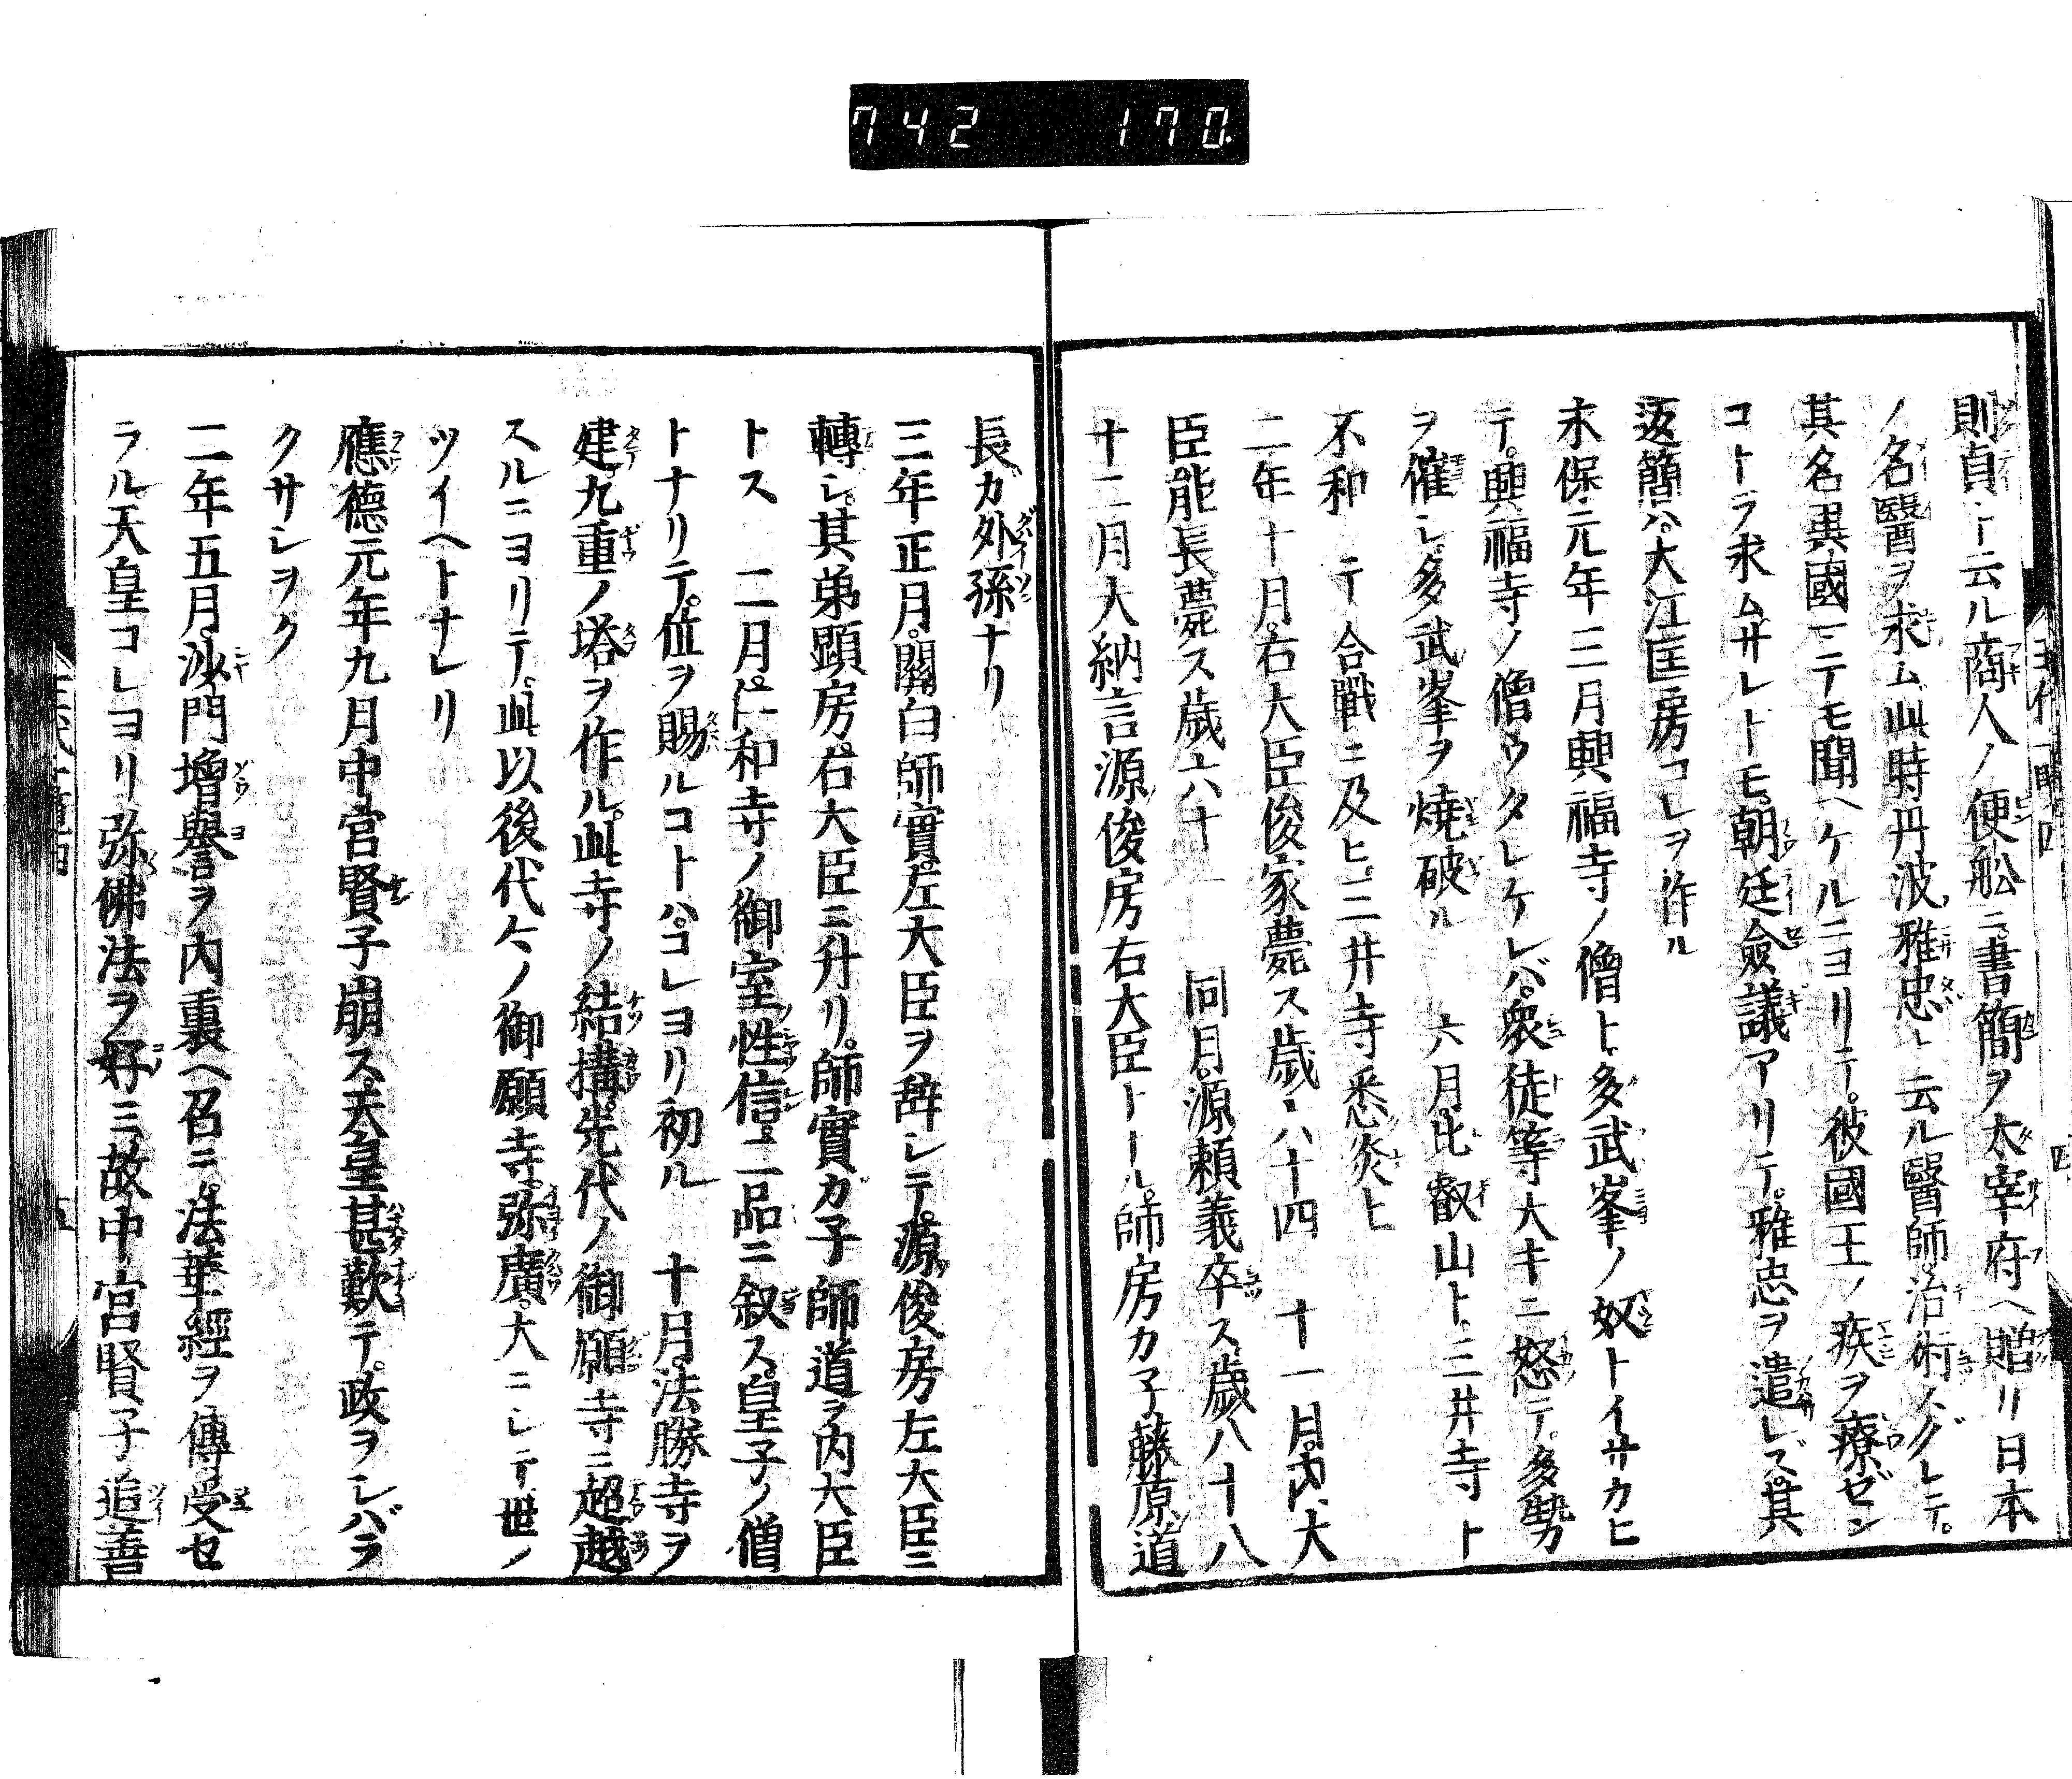 742 170
則貞ト云ル商人ノ便舩ニ書簡ヲ太宰府ヘ贈リ日本
ノ名醫ヲ求ム此時丹波雅忠ト云ル醫師治術スグレテ
其名異國ニテモ聞ヘケルニヨリテ彼國王ノ疾ヲ療ゼン
コトヲ求ムサレトモ朝廷僉議アリテ雅忠ヲ遣レズ其
返簡ハ大江匡房コレヲ作ル
永保元年三月興福寺ノ僧ト多武峯ノ奴トイサカヒ
テ興福寺ノ僧ウタレケレバ衆徒等大キニ怒テ多勢
ヲ催シ多武峯ヲ焼破ル 六月比叡山ト三井寺ト
不和 テ合戰ニ及ヒ三井寺悉炎上
二年十月右大臣俊家薨ス歳六十四 十一月内大
臣能長薨ス歳六十一 同月源頼義卒ス歳八十八
十二月大納言源俊房右大臣ト ル師房カ子藤原道
長ガ外孫ナリ
三年正月關白師實左大臣ヲ辞シテ源俊房左大臣ニ
轉シ其弟顕房右大臣ニ升リ師實カ子師道ヲ内大臣
トス 二月仁和寺ノ御室性信ニ二品ニ叙ス皇子ノ僧
トナリテ位ヲ賜ルコトハコレヨリ初ル 十月法勝寺ヲ
建九重ノ塔ヲ作ル此寺ノ結搆先代ノ御願寺ニ超越
スルニヨリテ此以後代々ノ御願寺弥廣大ニシテ世ノ
ツイヘトナレリ
應徳元年九月中宮賢子崩ス天皇甚歎テ政ヲシバラ
クサシヲク
二年五月沙門増譽ヲ内裏ヘ召ニ法華經ヲ傳受セ
ラル天皇コレヨリ弥佛法ヲ好三故中宮賢子追善